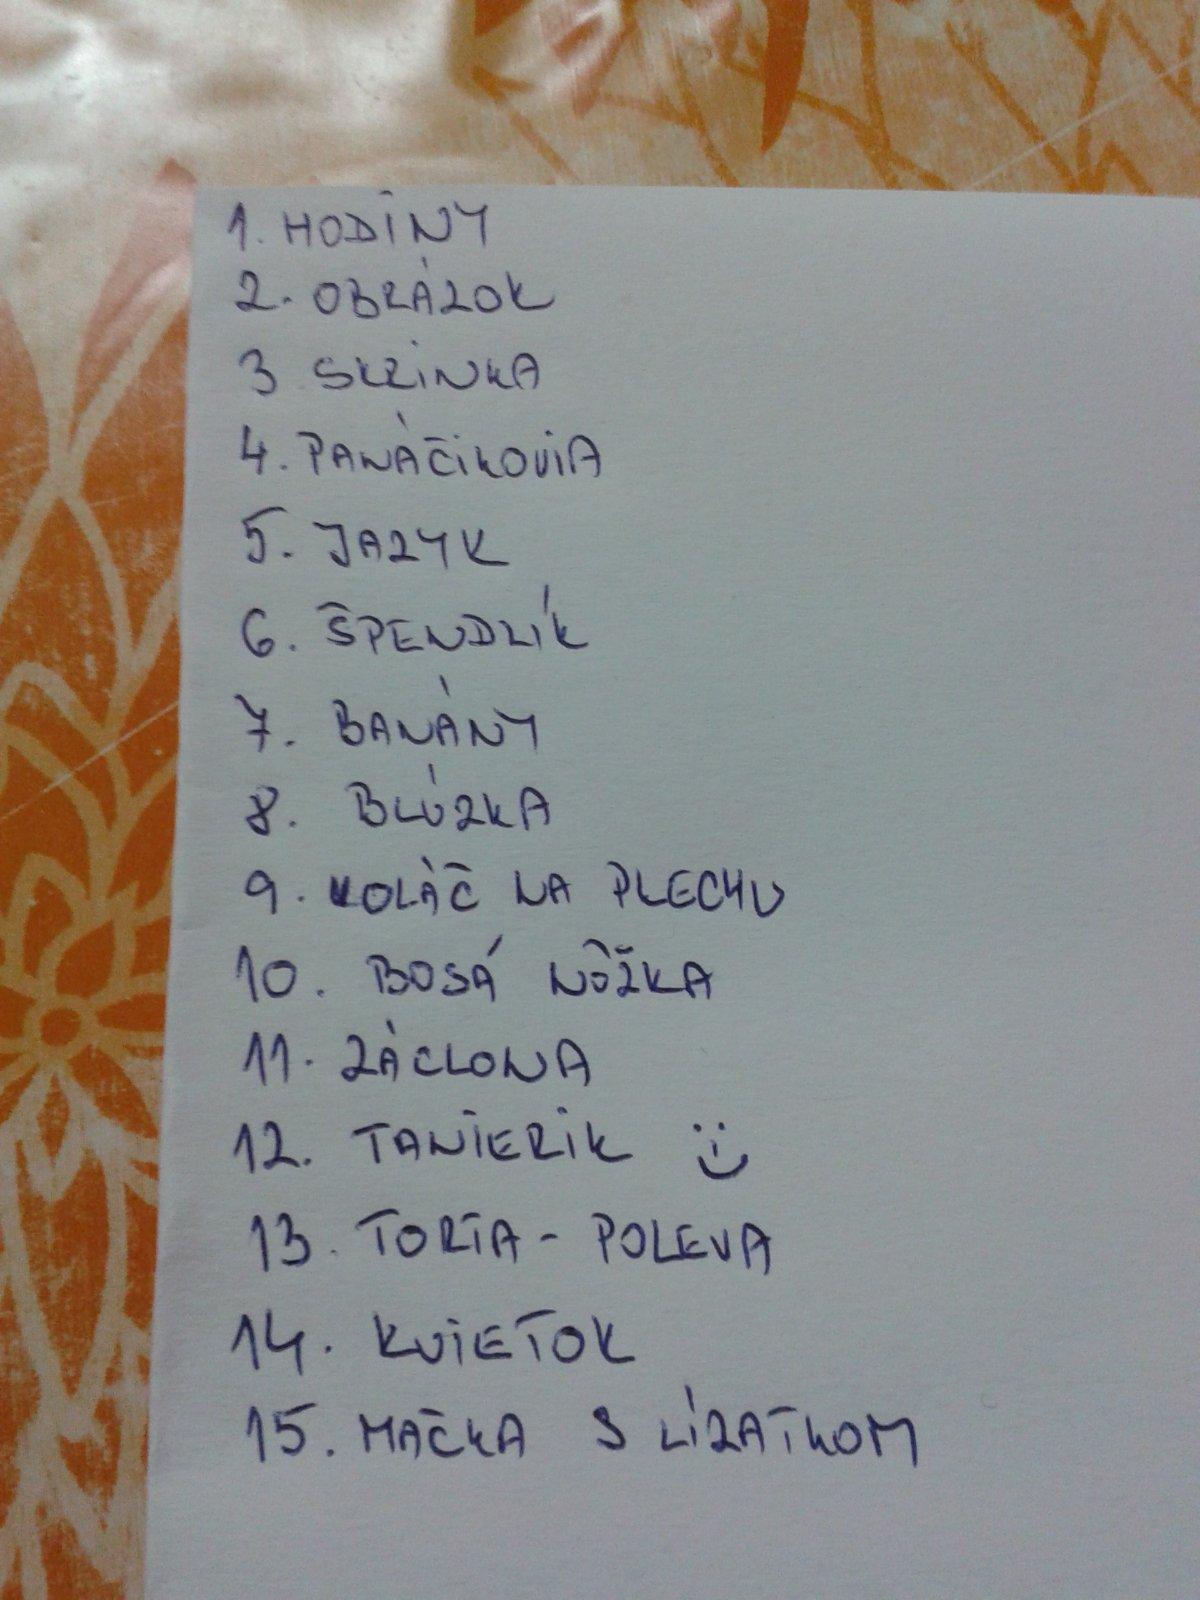 1. HODINY
2. OBRÁZOK
3 SKRINKA
4. PANÁČIKOVIA
5. JAZYK
6. ŠPENDLÍK
7. BANÁNY
8. BLÚZKA
9. KOLÁČ NA PLECHU
10. BOSÁ NÔŽKA
11. ZÁCLONA
12. TANIERIK
13. TORTA - POLEVA
14. KVIETOK
15. MAČKA S LÍZATKOM